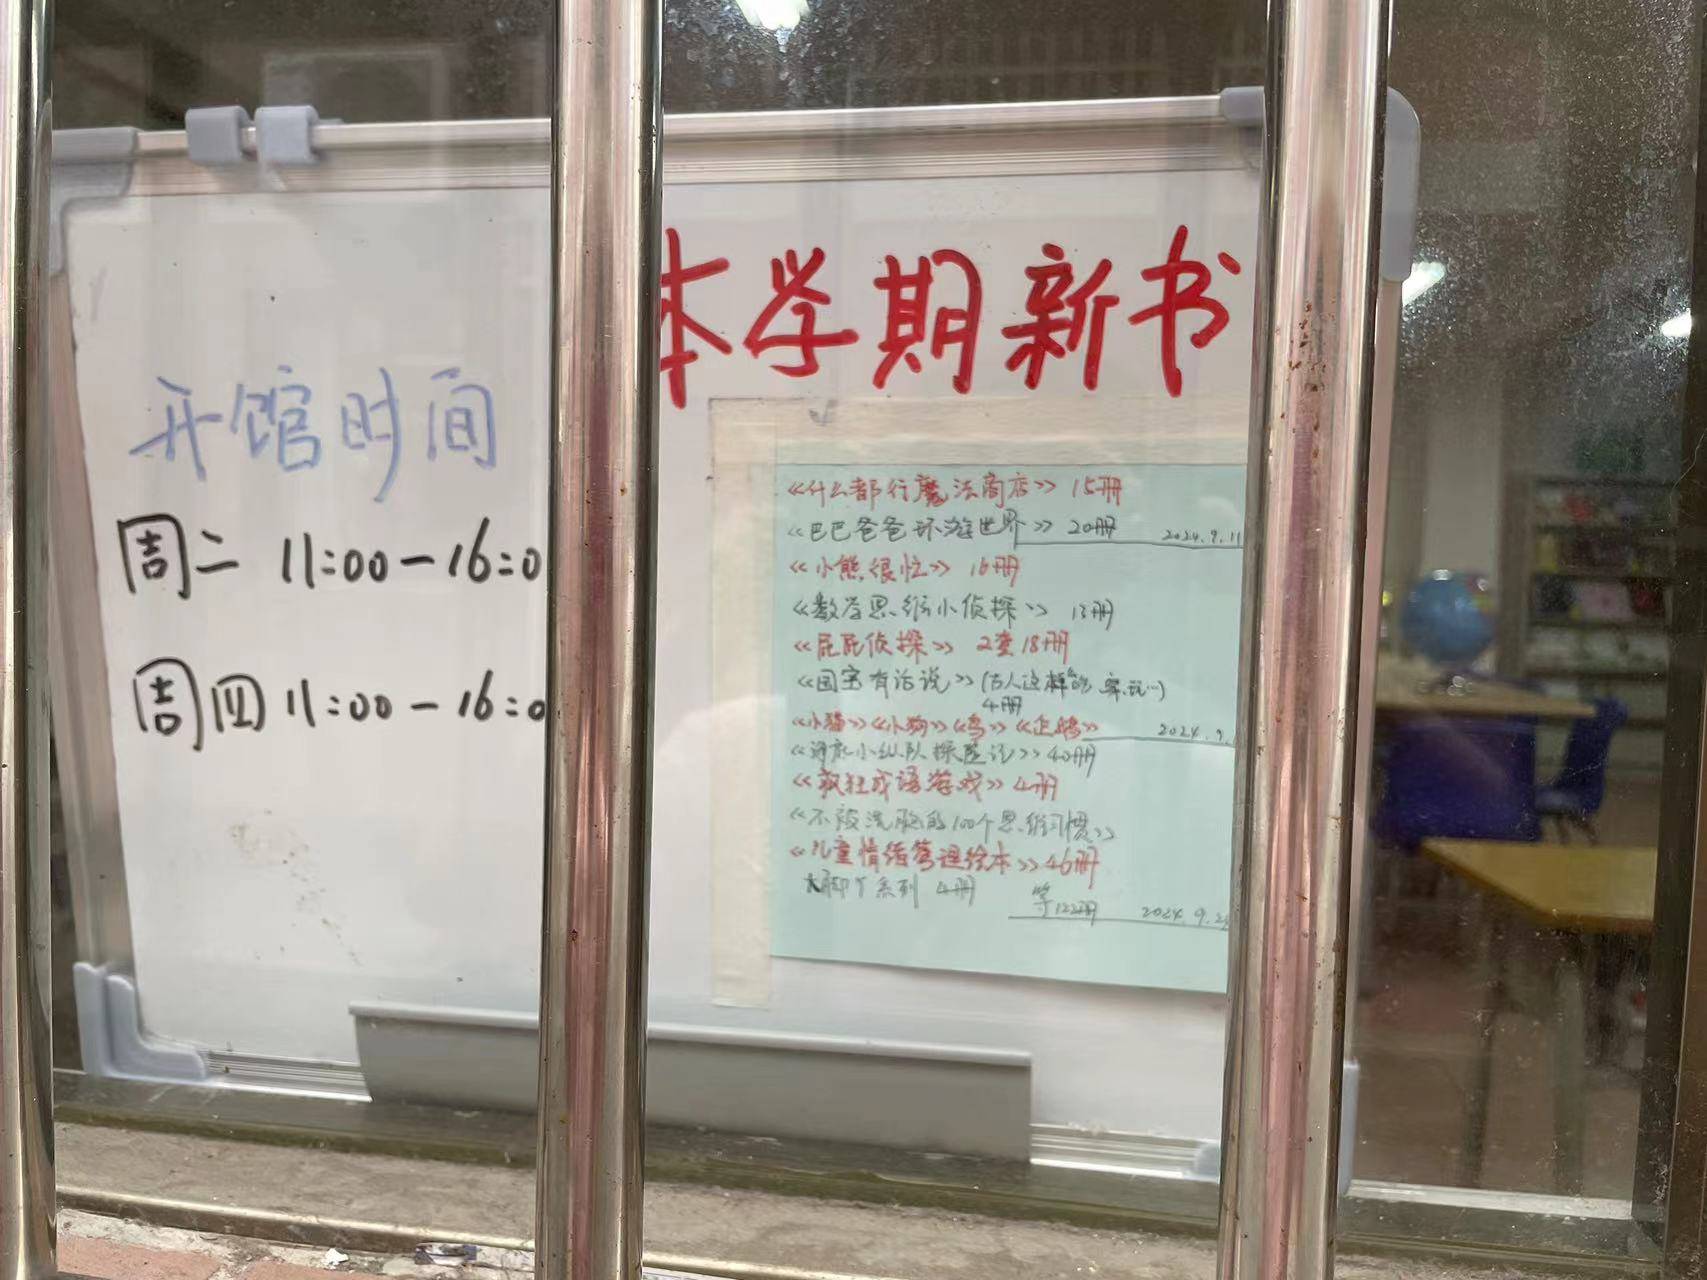 开馆时间
周二 11:00-16:0
周四 11:00-16:0
本学期新书
《什么都行魔法商店》 15册
《巴巴爸爸环游世界》 20册 2024.9.11
《小熊很忙》 16册
《数学思维小侦探》 13册
《屁屁侦探》 2套18册
《国宝有话说》(古人这样
4册
《小猫》《小狗》《鸟》《企鹅》 2024.9.
《海底小纵队探险记》 40册
《疯狂成语游戏》 4册
《不被洗脑的100个思维习惯》
《儿童情绪管理绘本》 46册
大脚丫系列 4册 等122册 2024.9.2